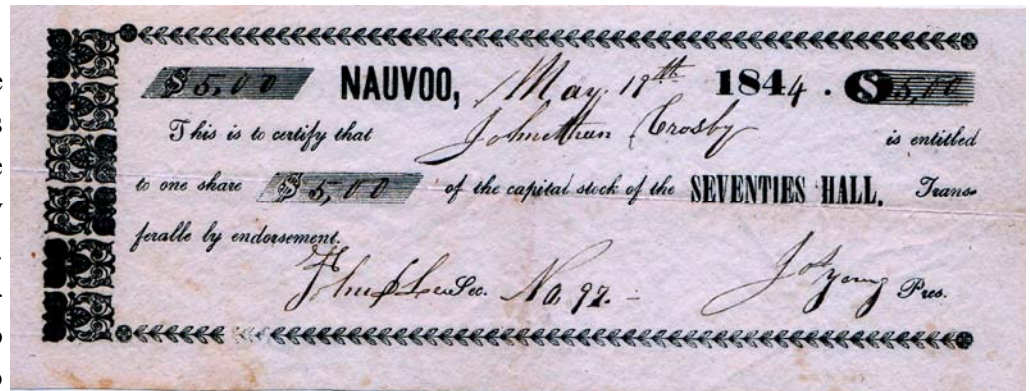 $5,00 NAUVOO, May 19th 1844. $5,00
This is to certify that Johnathan Crosby is entitled
to one share $5,00 of the capital stock of the SEVENTIES HALL, Trans-
ferable by endorsement.
John D Lee Sec. No, 92.- Jos Young Pres.